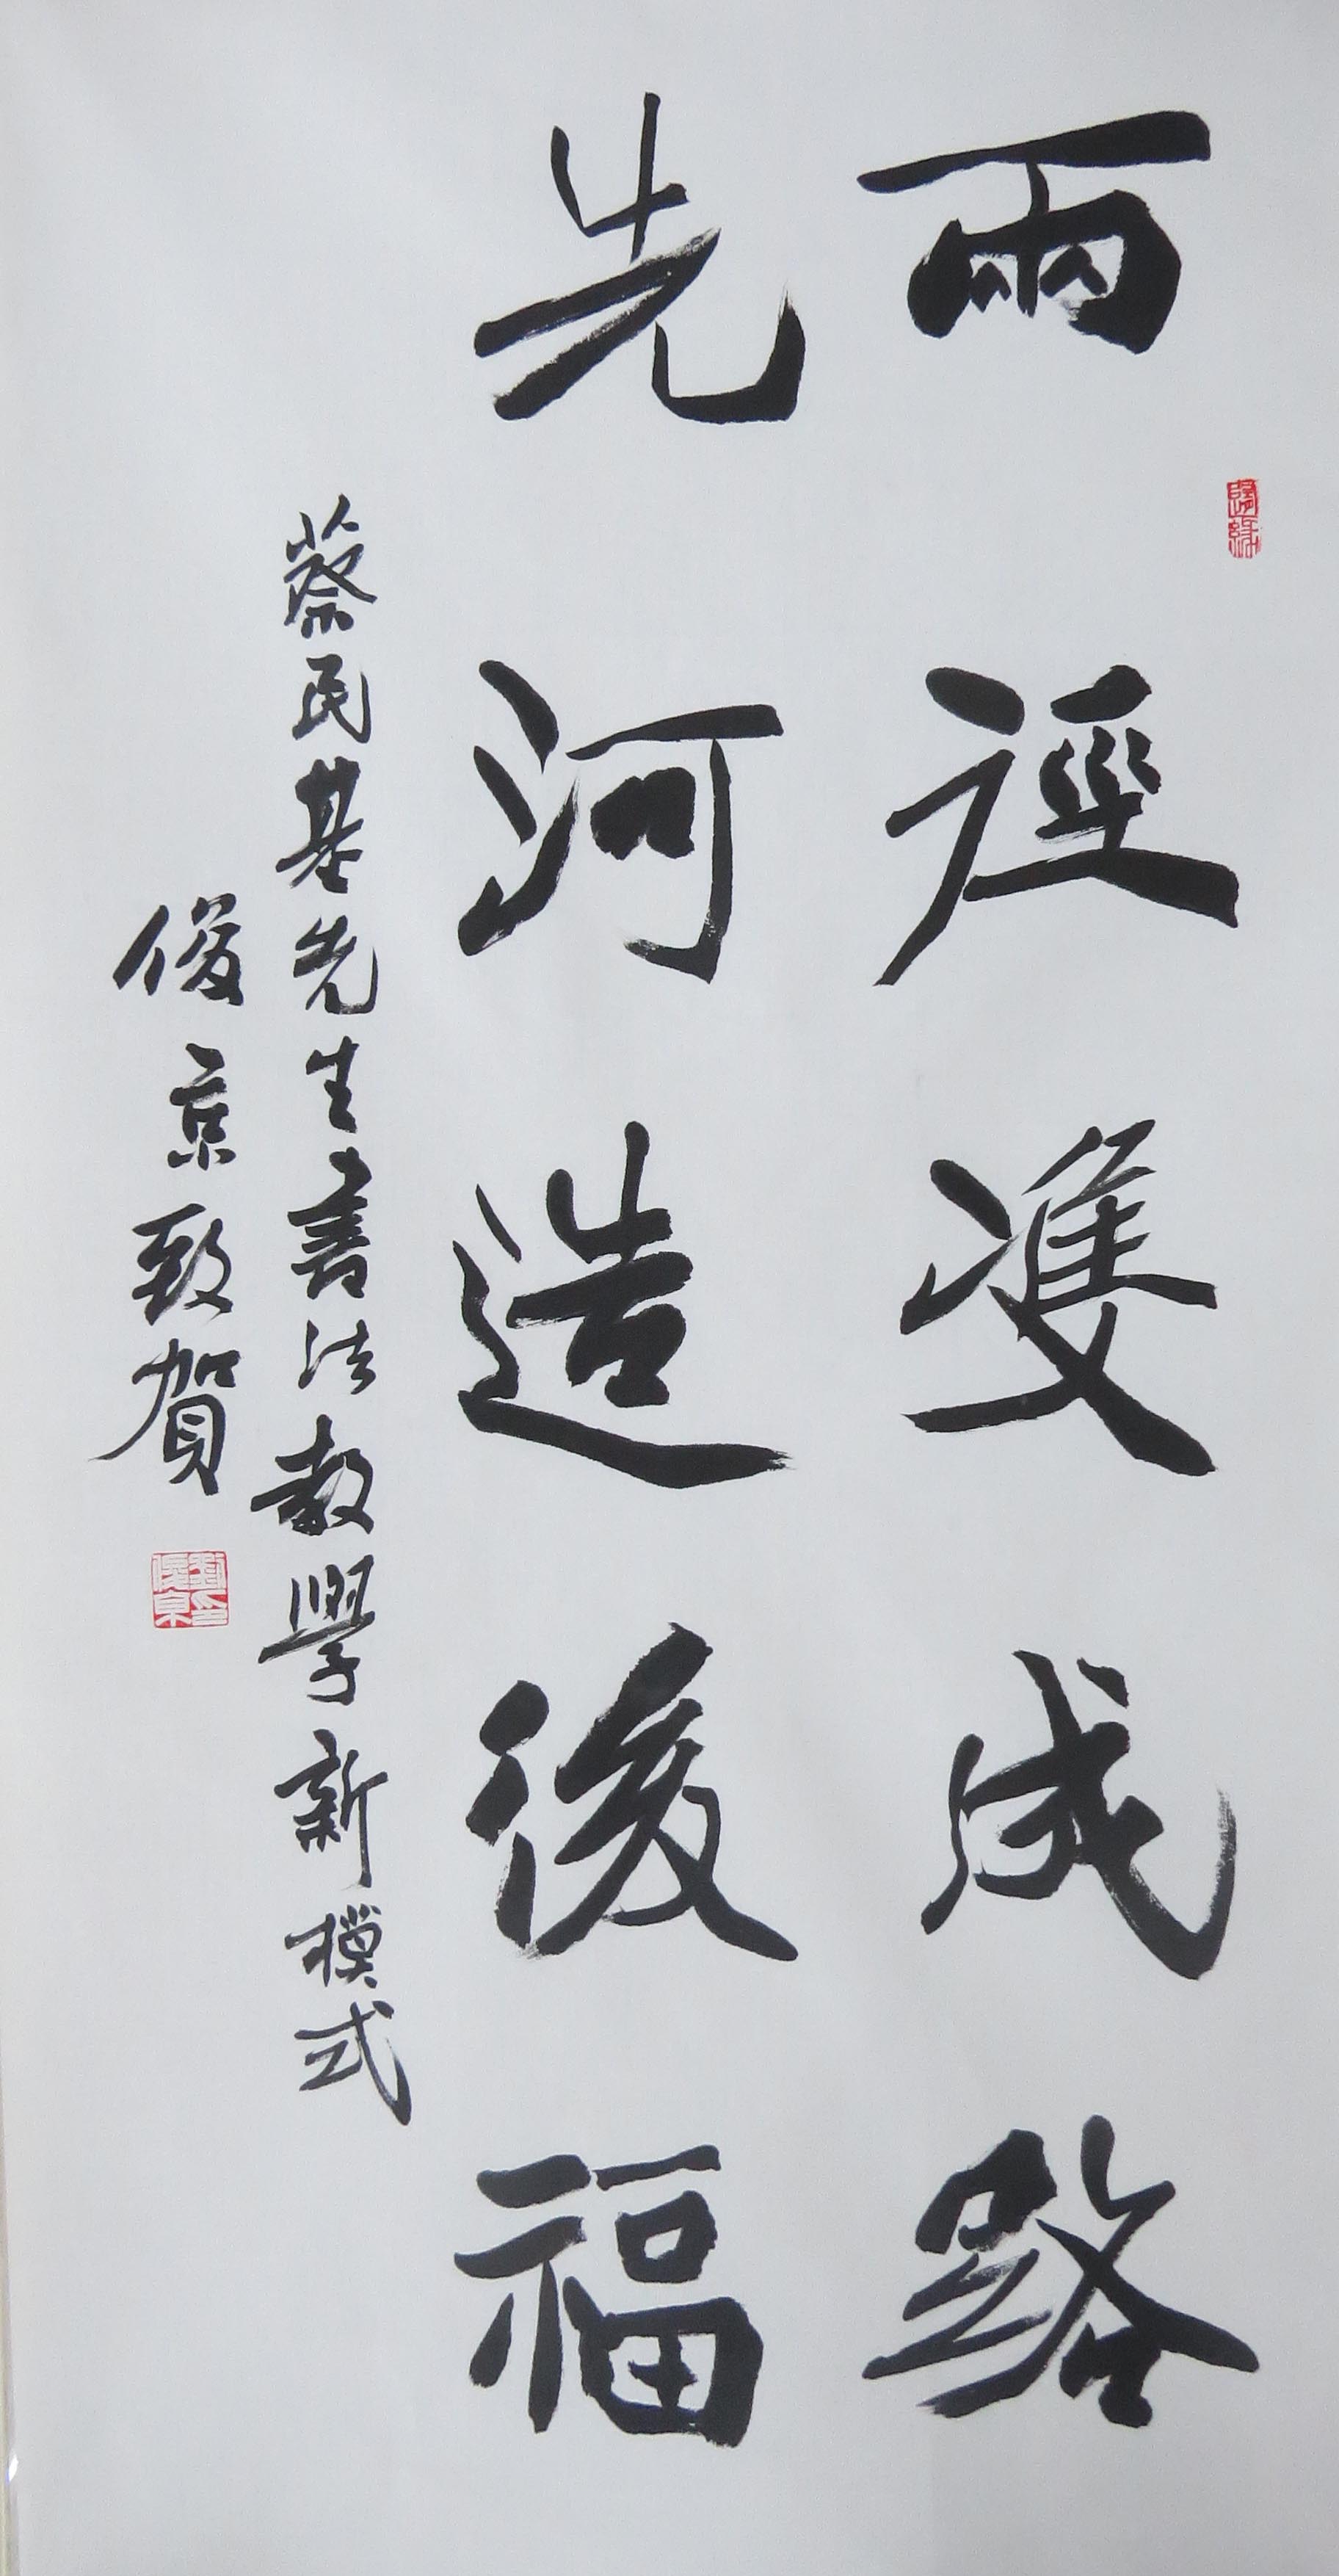 兩逕雙成路
先河造後福
蔡民基先生書法教學新模式
俊京致賀